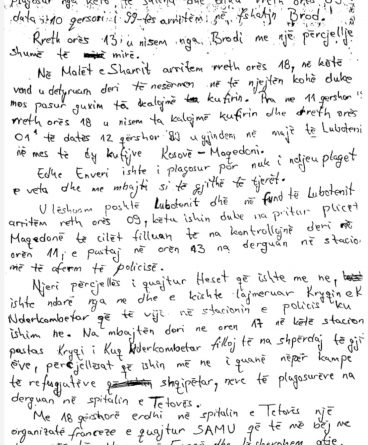 plagosur nga këto të
data 10 gersori i 99-ës arritëm në fshatin Brod.
Rreth orës 13, u nisem nga Brodi me një përcjellje
shumë të mirë.
Në Malet e Sharrit arritem rreth orës 18, në këtë
vend u detyruam deri të nesërmen në të njejtën kohë duke
mos pasur guxim të kalojmë kufirin. Pra me 11 gershor
rreth orës 18 u nisem ta kalojmë kufirin dhe rreth orës
01 të datës 12 gërshor u gjindem në majë të Luboteni
në mes të dy kufijve Kosovë - Maqedoni.
Edhe Enveri ishte i plagosur por nuk i ndjeu plaget
e veta dhe me mbajti si të gjithë të tjerët.
U lëshuam poshtë Lubotenit dhe në fund të Lubotenit
arritëm reth orës 09, këtu ishin duke na pritur plicët
Maqedonë të cilët filluan ta na kontrollojnë deri në
orën 11, e pastaj në orën 13 na derguan në stacio
më të afërm të policisë.
Njeri përcjellës i quajtur Heset që ishte me ne,
ishte ndarë nga ne dhe e kishte lajmëruar Kryqin e K
Nderkombëtar që të vijë në stacionin e policis ku
ishim ne. Na mbajtën deri ne oren 17 në këtë stacion
pastas Kryqi i Kuq Nderkombetar filloj të na shpërdaj të gji
ëve, përcjellësat që ishin më ne i quanë nëpër kampe
të refugjatëve shqipëtar, nerc të plagosurëve na
dërguan në spitalin e Tetovës.
Me 18 gërshorë erdhi në spitalin e Tetovës një
organizatë franceze e quajtur SAMU që të më bëj me